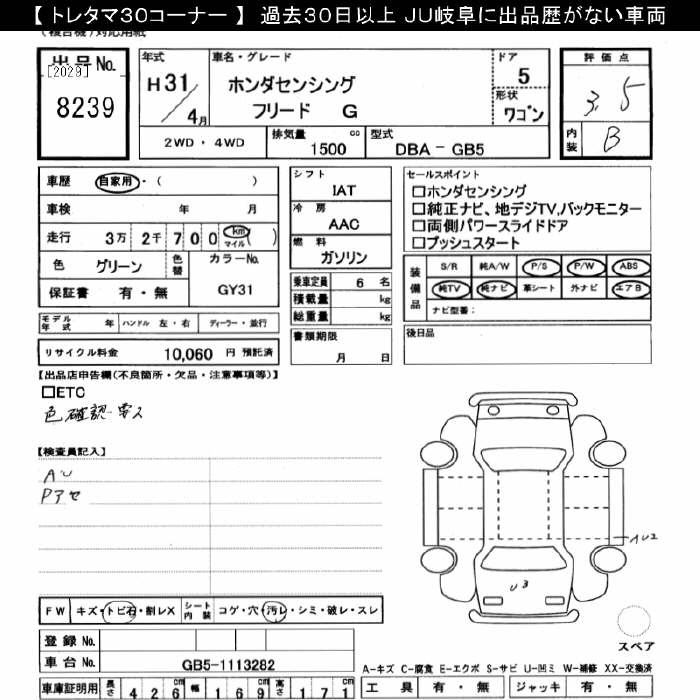 【 トレタマ30コーナー 】 過去30日以上 JU岐阜に出品歴がない車両
出品No.
[2029]
8239
年式
H 31
4月
車名・グレード
ホンダセンシング
フリード G
ドア
5
形状
ワゴン
評価点
3.5
内装
B
2WD ・ 4WD
排気量
1500 cc
型式
DBA - GB5
車歴 自家用・( )
車検 年 月
走行 3万 2千 7 0 0 km マイル ( )
色 グリーン 色替 カラーNo.
GY31
保証書 有・無
シフト
IAT
冷房
AAC
燃料
ガソリン
乗車定員 6 名
積載量 kg
総重量 kg
書類期限
月 日
セールスポイント
□ホンダセンシング
□純正ナビ、地デジTV,バックモニター
□両側パワースライドドア
□プッシュスタート
装備品
S/R 純A/W P/S P/W ABS
純TV 純ナビ 革シート 外ナビ エアB
ナビ型番:
後日品
モデル年式 年 ハンドル 左・右 ディーラー・並行
リサイクル料金 10,060 円 預託済
【出品店申告欄(不良箇所・欠品・注意事項等)】
□ETC
色確認要ス
【検査員記入】
AU
Pアセ
AU2
U3
スペア
FW キズ・トビ石・割レX シート内装 コゲ・穴・汚レ・シミ・破レ・スレ
登録 No.
車台 No. GB5-1113282
車庫証明用 長さ 426 cm 幅 169 cm 高さ 171 cm
A-キズ C-腐食 E-エクボ S-サビ U-凹ミ W-補修 XX-交換済
工具 有・無 ジャッキ 有・無